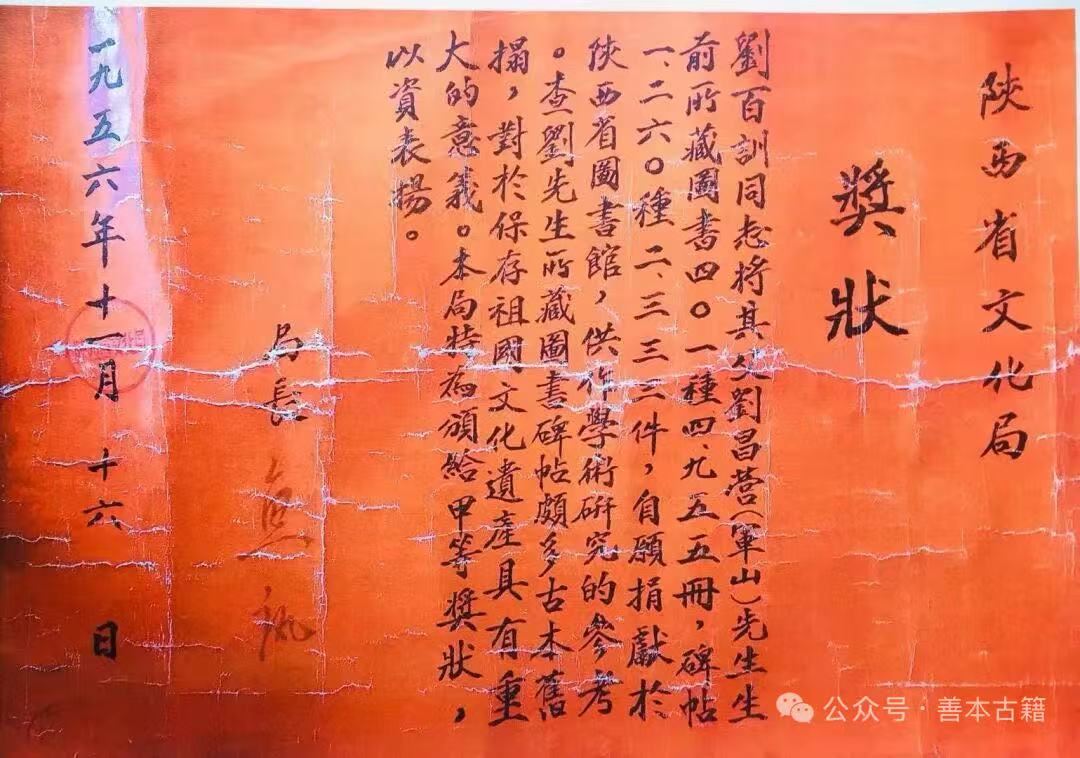 陝西省文化局
獎狀
劉百訓同志將其父劉昌營(軍山)先生生
前所藏圖書四〇一種四、九五五冊，碑帖
一、二六〇種二、三三三件，自願捐獻於
陝西省圖書館，供作學術研究的參考
。查劉先生所藏圖書碑帖頗多古本舊
搨，對於保存祖國文化遺產具有重
大的意義。本局特為頒給甲等獎狀，
以資表揚。
局長
一九五六年十一月十六日
公众号·善本古籍